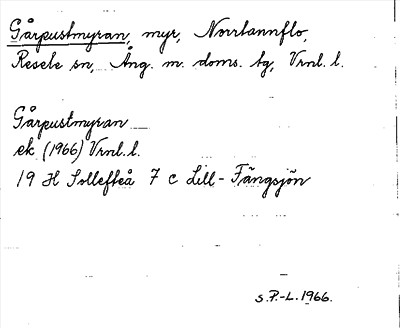 Gårpustmyran, myr, Norrtannflo,
Resele sn, Ång. m. doms. tg, Vrnl. l.
Gårpustmyran
ek (1966) Vrnl. l.
19 H Sollefteå 7 c Lill-Fängsjön
S.P.-L. 1966.